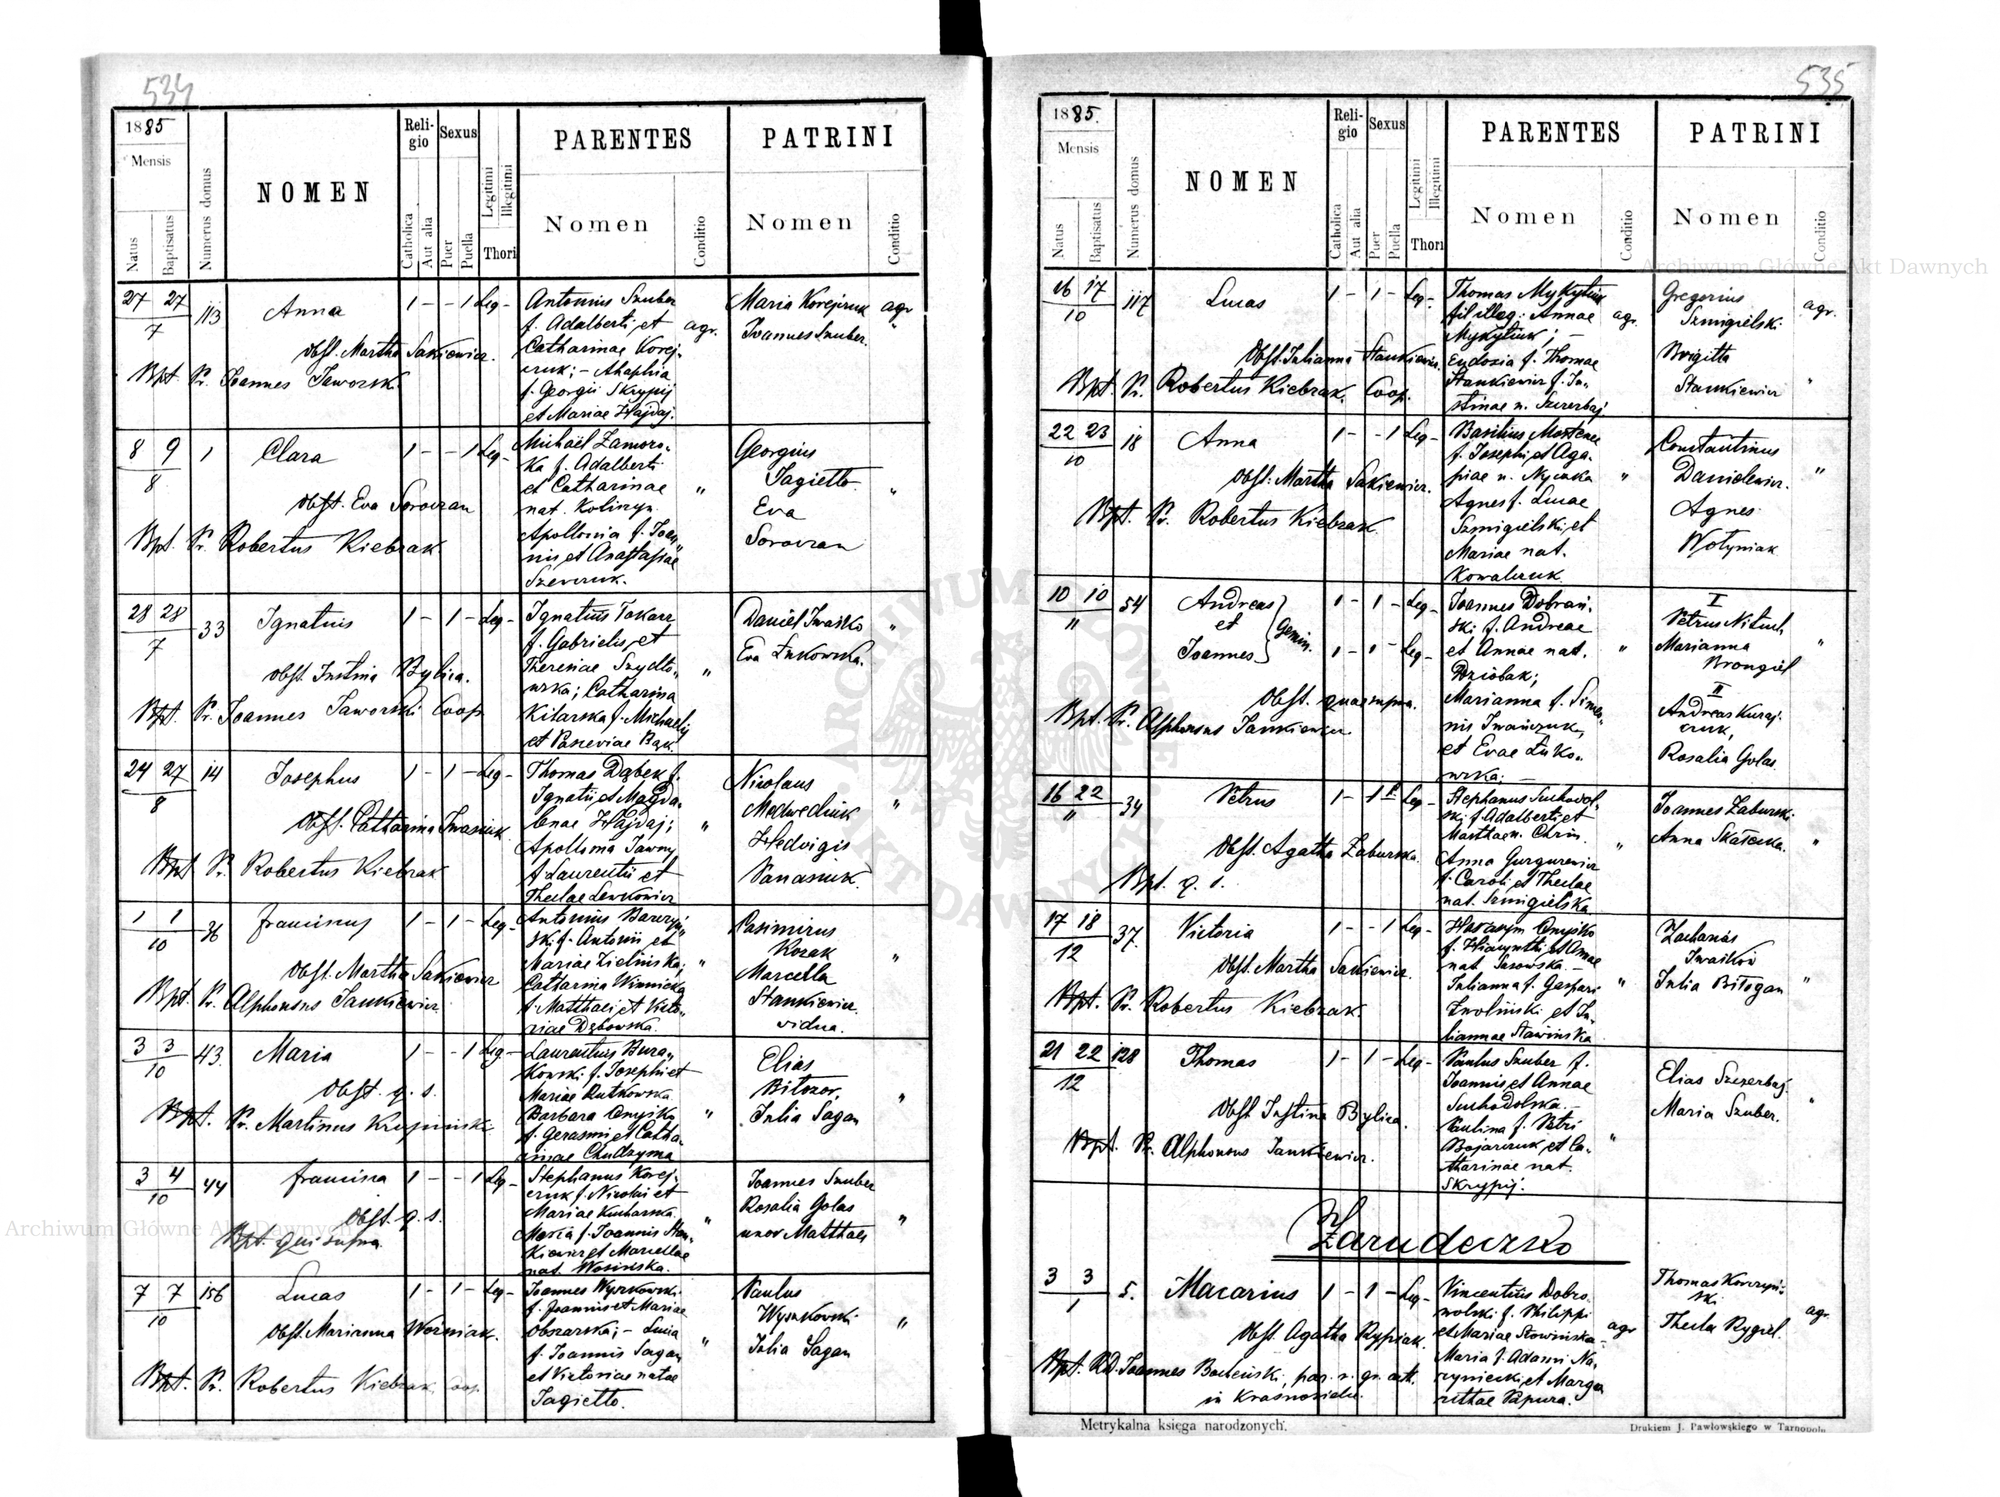 534
1885
Mensis
Natus
Baptisatus
Numerus domus
NOMEN
Religio
Catholica
Aut alia
Sexus
Puer
Puella
Legitimi
Illegitimi
Thori
PARENTES
Nomen
Conditio
PATRINI
Nomen
Conditio
27 27
7
113
Anna
1 - - 1 Leg -
Obst. Martha Sakiewicz.
Bpt. Pr. Joannes Jaworski.
Antonius Szuber
f. Adalberti et
Catharinae Korej-
czuk; - Ahaphia
f. Georgii Skrypij
et Mariae Hajdaj.
agr.
Maria Korejczuk agr
Joannes Szuber. "
8 9
8
1
Clara
1 - - 1 Leg -
Obst. Eva Soroczan
Bpt. Pr. Robertus Kiebzak.
Michaël Zamoro-
ka f. Adalberti
et Catharinae
nat. Koliczyn.
Apollonia f. Joan-
nis et Anastasiae
Szewczuk.
"
Georgius
Jagietto.
Eva
Soroczan
"
28 28
7
33
Ignatius
1 - 1 - Leg -
Obst. Justina Bylica.
Bpt. Pr. Joannes Jaworski Coop.
Ignatius Tokarz
f. Gabrielis et
Theresiae Szydło-
wska; Catharina
Kilarska f. Michaelis
et Pasceviae Bąk.
"
Daniel Iwaśko
Eva Łukowska.
"
24 27
8
14
Josephus
1 - 1 - Leg -
Obst. Catharina Iwasiuk.
Bpt Pr. Robertus Kiebzak
Thomas Dąbek f.
Ignatii et Magda-
lenae Hajdaj;
Apollonia Jawny
f Laurentii et
Theclae Lewkowicz
"
Nicolaus
Medwediuk
Hedvigis
Panasiuk.
"
1 1
10
36
Franciscus
1 - 1 - Leg -
Obst. Martha Sakiewicz
Bpt. Pr. Alphonsus Jankiewicz.
Mariae Zielińska;
Catharina Winnicka
f. Matthaei et Victo-
riae Dębowska.
"
Casimirus
Kozak
Marcella
Stankiewicz.
vidua.
"
3 3
10
43.
Maria
1 - - 1 Leg -
Obst. q. s.
Bpt. Pr. Martinus Krypiński.
Laurentius Bura-
kowski f. Josephi et
Mariae Rutkowska
Barbara Onyśko
f. Gerasmi et Catha-
rinae Chudzyma
"
Elias
Bitozor,
Julia Sagan
"
3 4
10
44
Francisca
1 - - 1 Leg -
Obst. q. s.
Bpt. qui supra.
Stephanus Korej-
czuk f. Nicolai et
Mariae Kucharska.
Maria f. Joannis Stan-
kiewicz et Marcellae
nat. Wosińska.
"
Joannes Szuber
Rosalia Golas
uxor Matthaei
"
7 7
10
156
Lucas
1 - 1 - Leg -
Obst. Marianna Woźniak.
Bpt. Pr. Robertus Kiebzak. Coop.
Joannes Wyszkowski
f. Joannis et Mariae
Obszarska; - Lucia
f. Joannis Sagan
et Victoriae natae
Jagietto.
"
Paulus
Wyszkowski
Julia Sagan
"
535
1885.
Mensis
Natus
Baptisatus
Numerus domus
NOMEN
Religio
Catholica
Aut alia
Sexus
Puer
Puella
Legitimi
Illegitimi
Thori
PARENTES
Nomen
Conditio
PATRINI
Nomen
Conditio
16 17
10
117
Lucas
1 - 1 - Leg -
Obst. Julianna Stankiewicz.
Bpt. Pr. Robertus Kiebzak. Coop.
Thomas Mykytiuk
fil illeg: Annae
Mykytiuk; -
Eudoxia f. Thomae
Stankiewicz f. Ju-
stinae n. Szczerbaj
agr.
Gregorius
Szmigielski
Brigitta
Stankiewicz
agr.
"
22 23
10
18
Anna
1 - - 1 Leg -
Obst: Martha Sakiewicz.
Bpt. Pr. Robertus Kiebzak.
f. Josephi et Aga-
Agnes f. Lucae
Szmigielski et
Mariae nat.
Kowalczuk.
"
Constantinus
Danielewicz.
Agnes
Wołyniak
"
10 10
11
54
Andreas
et
Joannes
Gemin.
1 - 1 - Leg -
1 - 1 - Leg -
Obst. quae supra.
Bpt. Pr. Alphonsus Jankiewicz
Joannes Dobrań-
ski f. Andreae
et Annae nat.
Dziobak;
Marianna f. Simeo-
nis Iwańczuk,
et Evae Łuko-
wska. -
"
I
Petrus Nitsch
Marianna
Brongiel
II
Andreas Kuraj-
czuk,
Rosalia Golas
"
16 22
11
34
Petrus
1 - 1 - Leg -
Obst. Agatha Zaburska.
Bpt. q. s.
Stephanus Suchodol-
ski f. Adalberti et
Anna Gurgurewicz
f. Caroli et Theclae
nat. Szmigielska
"
Joannes Zaburski
Anna Skałecka.
"
17 18
12
37.
Victoria
1 - - 1 Leg -
Obst. Martha Sakiewicz.
Bpt. Pr. Robertus Kiebzak.
Harasym Onyśko
f. Hiacynthi et Annae
nat. Sasowska. -
Julianna f. Gaspari
Zwoliński et Ju-
liannae Sławińska
"
Zacharias
Iwaśków
Julia Bitogan
"
21 22
12
128
Thomas
1 - 1 - Leg -
Obst Justina Bylica.
Bpt. Pr. Alphonsus Jankiewicz.
Paulus Szuber f.
Joannis et Annae
Suchodolska. -
Paulina f. Petri
Bojarczuk et Ca-
tharinae nat.
Skrypij.
"
Elias Szczerbaj.
Maria Szuber.
"
Zarudeczko
3 3
1
5.
Macarius
1 - 1 - Leg -
Obst. Agatha Rypiak.
Bpt. RD. Joannes Bocheński, par. r. gr. cat.
in Krasnosielce.
Vincentius Dobro-
wolski f. Philippi
et Mariae Słowińska -
Maria f. Adami Na-
ryniecki et Marga-
rithae Papura.
agr
Thomas Korczyń-
ski
Thecla Rygiel.
agr.
Metrykalna księga narodzonych.
Drukiem J. Pawłowskiego w Tarnopolu.
Archiwum Główne Akt Dawnych
Archiwum Główne Akt Dawnych
ARCHIWUM GŁÓWNE AKT DAWNYCH